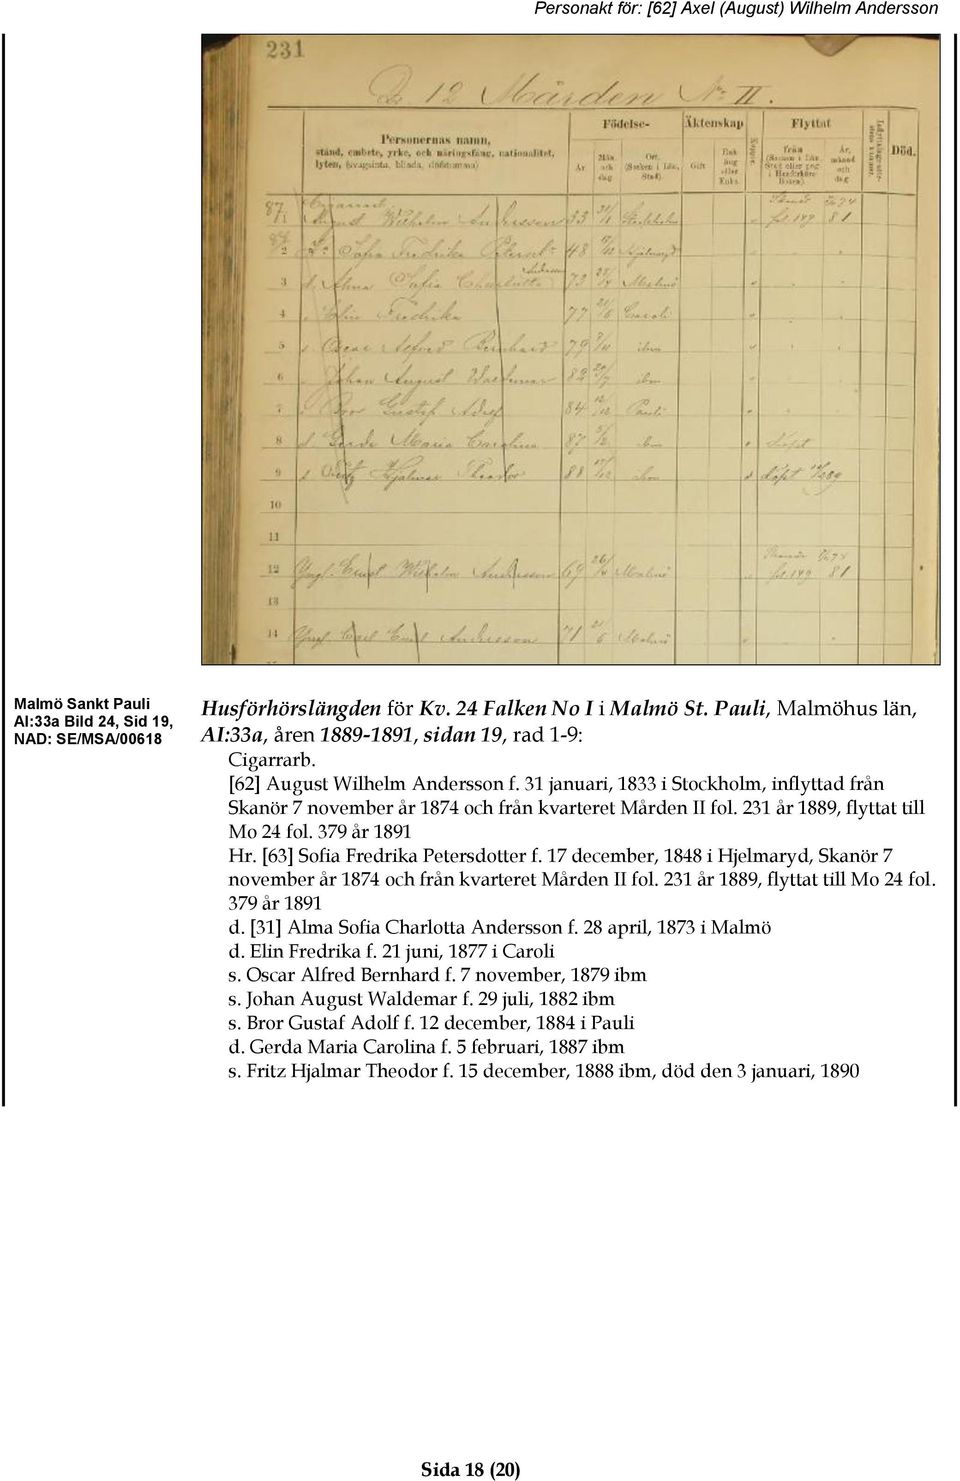 Personakt för: [62] Axel (August) Wilhelm Andersson
231
12 Mården No II.
Personernas namn,
stånd, embete, yrke, och näringsfång, nationalitet,
lyten, (svagsinta, blinda, döfstumma)
Födelse-
År
Mån. och dag
Ort. (Socken i Län, Stad).
Äktenskap
Gift
Enk ling eller Enka.
Koppor.
Flyttat
från (Socken i Län, Stad eller pag. i Husförhörsboken).
År, månad och dag
Död.
87/1 Cigarrarb. August Wilhelm Andersson 33 31/1 Stockholm " Skanör fol. 149 7/11 74 81
2 Sofia Fredrika Petersd:r 48 17/12 Hjelmaryd " " "
3 d. Alma Sofia Charlotta Andersson 73 28/4 Malmö " " "
4 Elin Fredrika 77 21/6 Caroli " " "
5 s Oscar Alfred Bernhard 79 7/11 ibm " " "
6 Johan August Waldemar 82 29/7 ibm " " "
7 Bror Gustaf Adolf 84 12/12 Pauli " " "
8 d Gerda Maria Carolina 87 5/2 ibm " döpt
9 s Fritz Hjalmar Theodor 88 15/12 ibm döpt 89
10
11
12 Yngl. Ernst Wilhelm Andersson 69 Malmö " Skanör fol. 149 7/11 74 81
13
14 Yngl. Carl Emil Andersson 71 21/6 Malmö " " "
Malmö Sankt Pauli
AI:33a Bild 24, Sid 19,
NAD: SE/MSA/00618
Husförhörslängden för Kv. 24 Falken No I i Malmö St. Pauli, Malmöhus län,
AI:33a, åren 1889-1891, sidan 19, rad 1-9:
Cigarrarb.
[62] August Wilhelm Andersson f. 31 januari, 1833 i Stockholm, inflyttad från
Skanör 7 november år 1874 och från kvarteret Mården II fol. 231 år 1889, flyttat till
Mo 24 fol. 379 år 1891
Hr. [63] Sofia Fredrika Petersdotter f. 17 december, 1848 i Hjelmaryd, Skanör 7
november år 1874 och från kvarteret Mården II fol. 231 år 1889, flyttat till Mo 24 fol.
379 år 1891
d. [31] Alma Sofia Charlotta Andersson f. 28 april, 1873 i Malmö
d. Elin Fredrika f. 21 juni, 1877 i Caroli
s. Oscar Alfred Bernhard f. 7 november, 1879 ibm
s. Johan August Waldemar f. 29 juli, 1882 ibm
s. Bror Gustaf Adolf f. 12 december, 1884 i Pauli
d. Gerda Maria Carolina f. 5 februari, 1887 ibm
s. Fritz Hjalmar Theodor f. 15 december, 1888 ibm, död den 3 januari, 1890
Sida 18 (20)